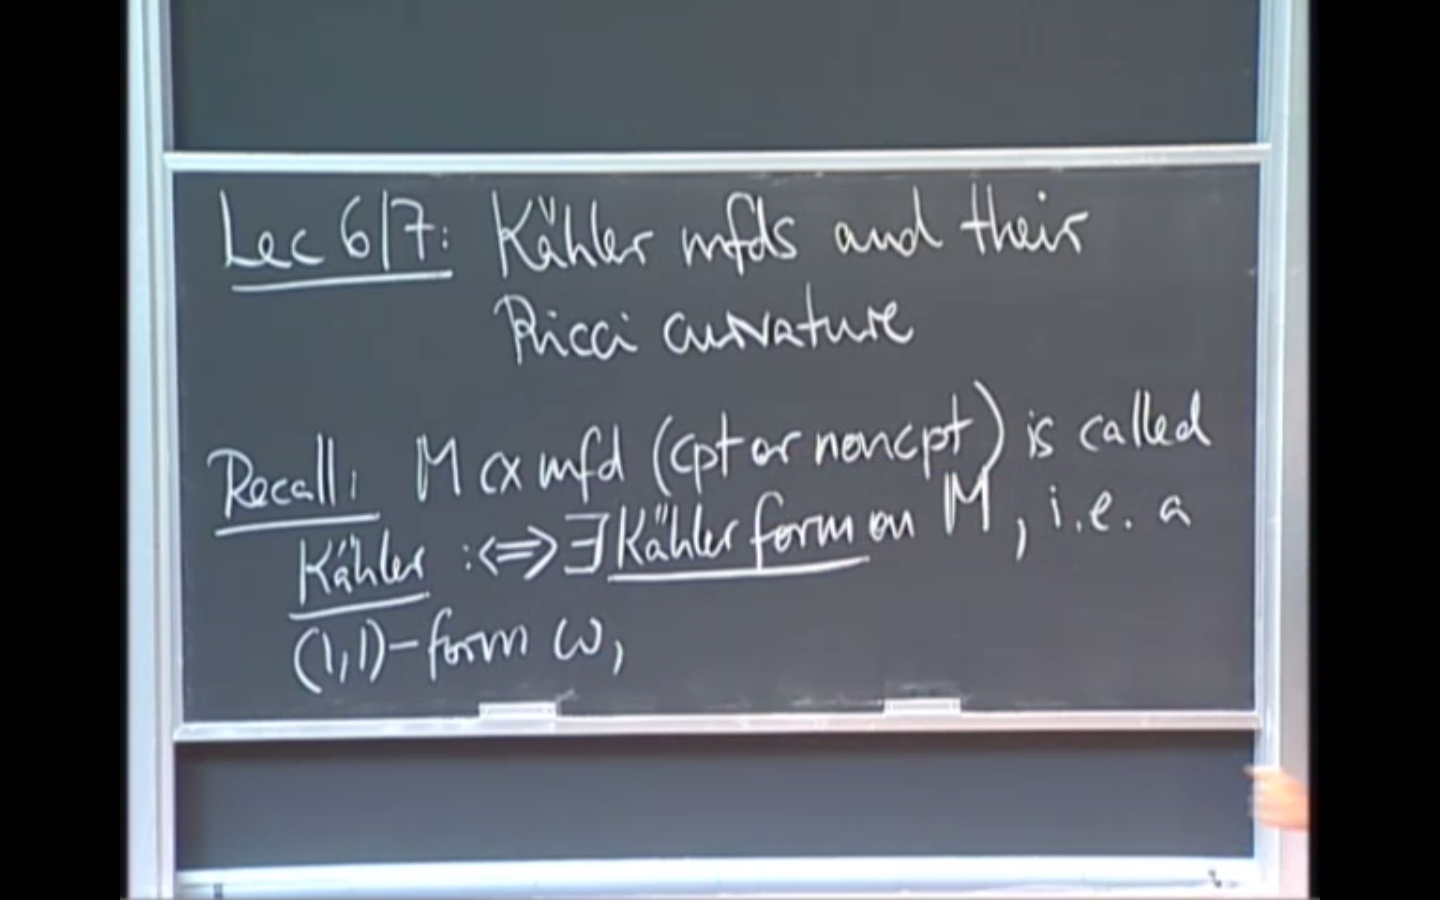 Lec 6/7: Kähler mfds and their
Ricci curvature
Recall: M cx mfd (cpt or noncpt) is called
Kähler :⇔ ∃ Kähler form on M, i.e. a
(1,1)-form ω,